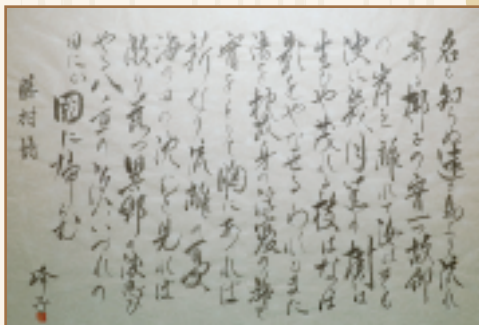 名も知らぬ遠き島より流れ
寄る椰子の実一つ故郷
の岸を離れて汝はそも
波に幾月旧の樹は
生ひや茂れる枝はなほ
影をやなせるわれもまた
渚を枕孤身の浮寝の旅ぞ
実をとりて胸にあつれば
新なり流離の憂
海の日の沈むを見れば
激り落つ異郷の涙思ひ
やる八重の汐々いづれの
日にか國に帰らむ
藤村詩